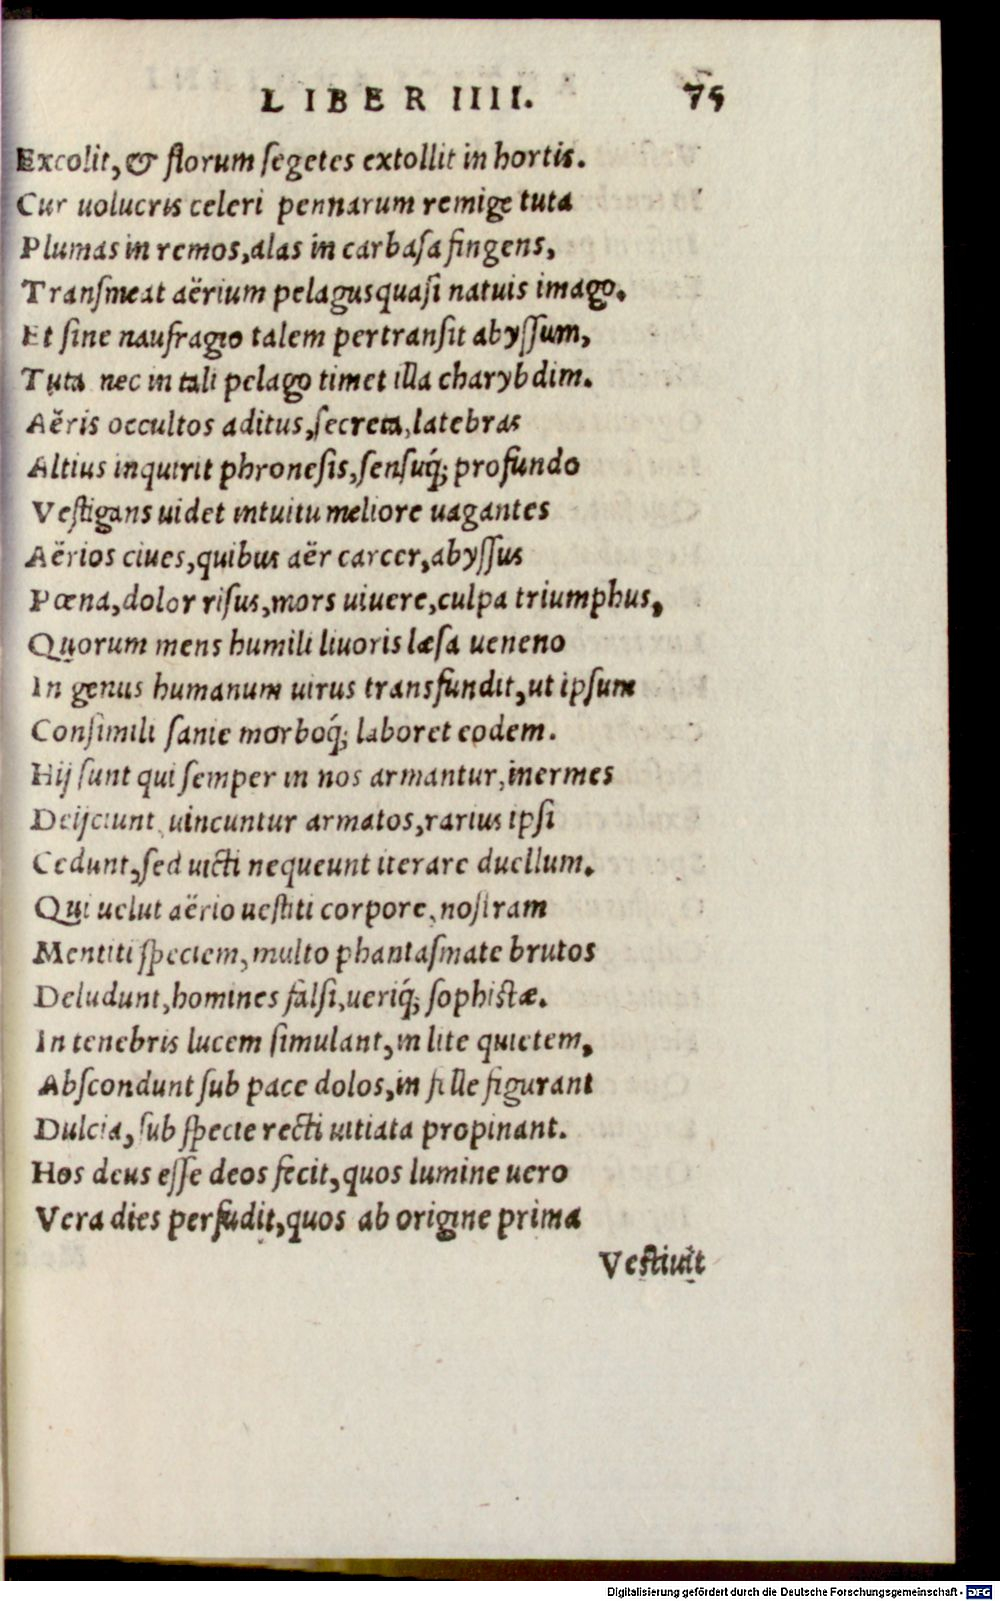 LIBER IIII. 75
Excolit, & florum ſegetes extollit in hortis.
Cur uolucris celeri pennarum remige tuta
Plumas in remos, alas in carbaſa fingens,
Tranſmeat aërium pelagus quaſi natuis imago.
Et ſine naufragio talem pertranſit abyſſum,
Tuta nec in tali pelago timet illa charybdim.
Aëris occultos aditus, ſecreta, latebras
Altius inquirit phroneſis, ſenſuq́; profundo
Veſtigans uidet intuitu meliore uagantes
Aërios ciues, quibus aër carcer, abyſſus
Pœna, dolor riſus, mors uiuere, culpa triumphus,
Quorum mens humili liuoris læſa ueneno
In genus humanum uirus transfundit, ut ipſum
Conſimili ſanie morboq́; laboret eodem.
Hij ſunt qui ſemper in nos armantur, inermes
Deijciunt, uincuntur armatos, rarius ipſi
Cedunt, ſed uicti nequeunt iterare duellum.
Qui uelut aërio ueſtiti corpore, noſtram
Mentiti ſpeciem, multo phantaſmate brutos
Deludunt, homines falſi, ueriq́; ſophiſtæ.
In tenebris lucem ſimulant, in lite quietem,
Abſcondunt ſub pace dolos, in fille figurant
Dulcia, ſub ſpecie recti uitiata propinant.
Hos deus eſſe deos fecit, quos lumine uero
Vera dies perfudit, quos ab origine prima
Veſtiuit
Digitalisierung gefördert durch die Deutsche Forschungsgemeinschaft - DFG